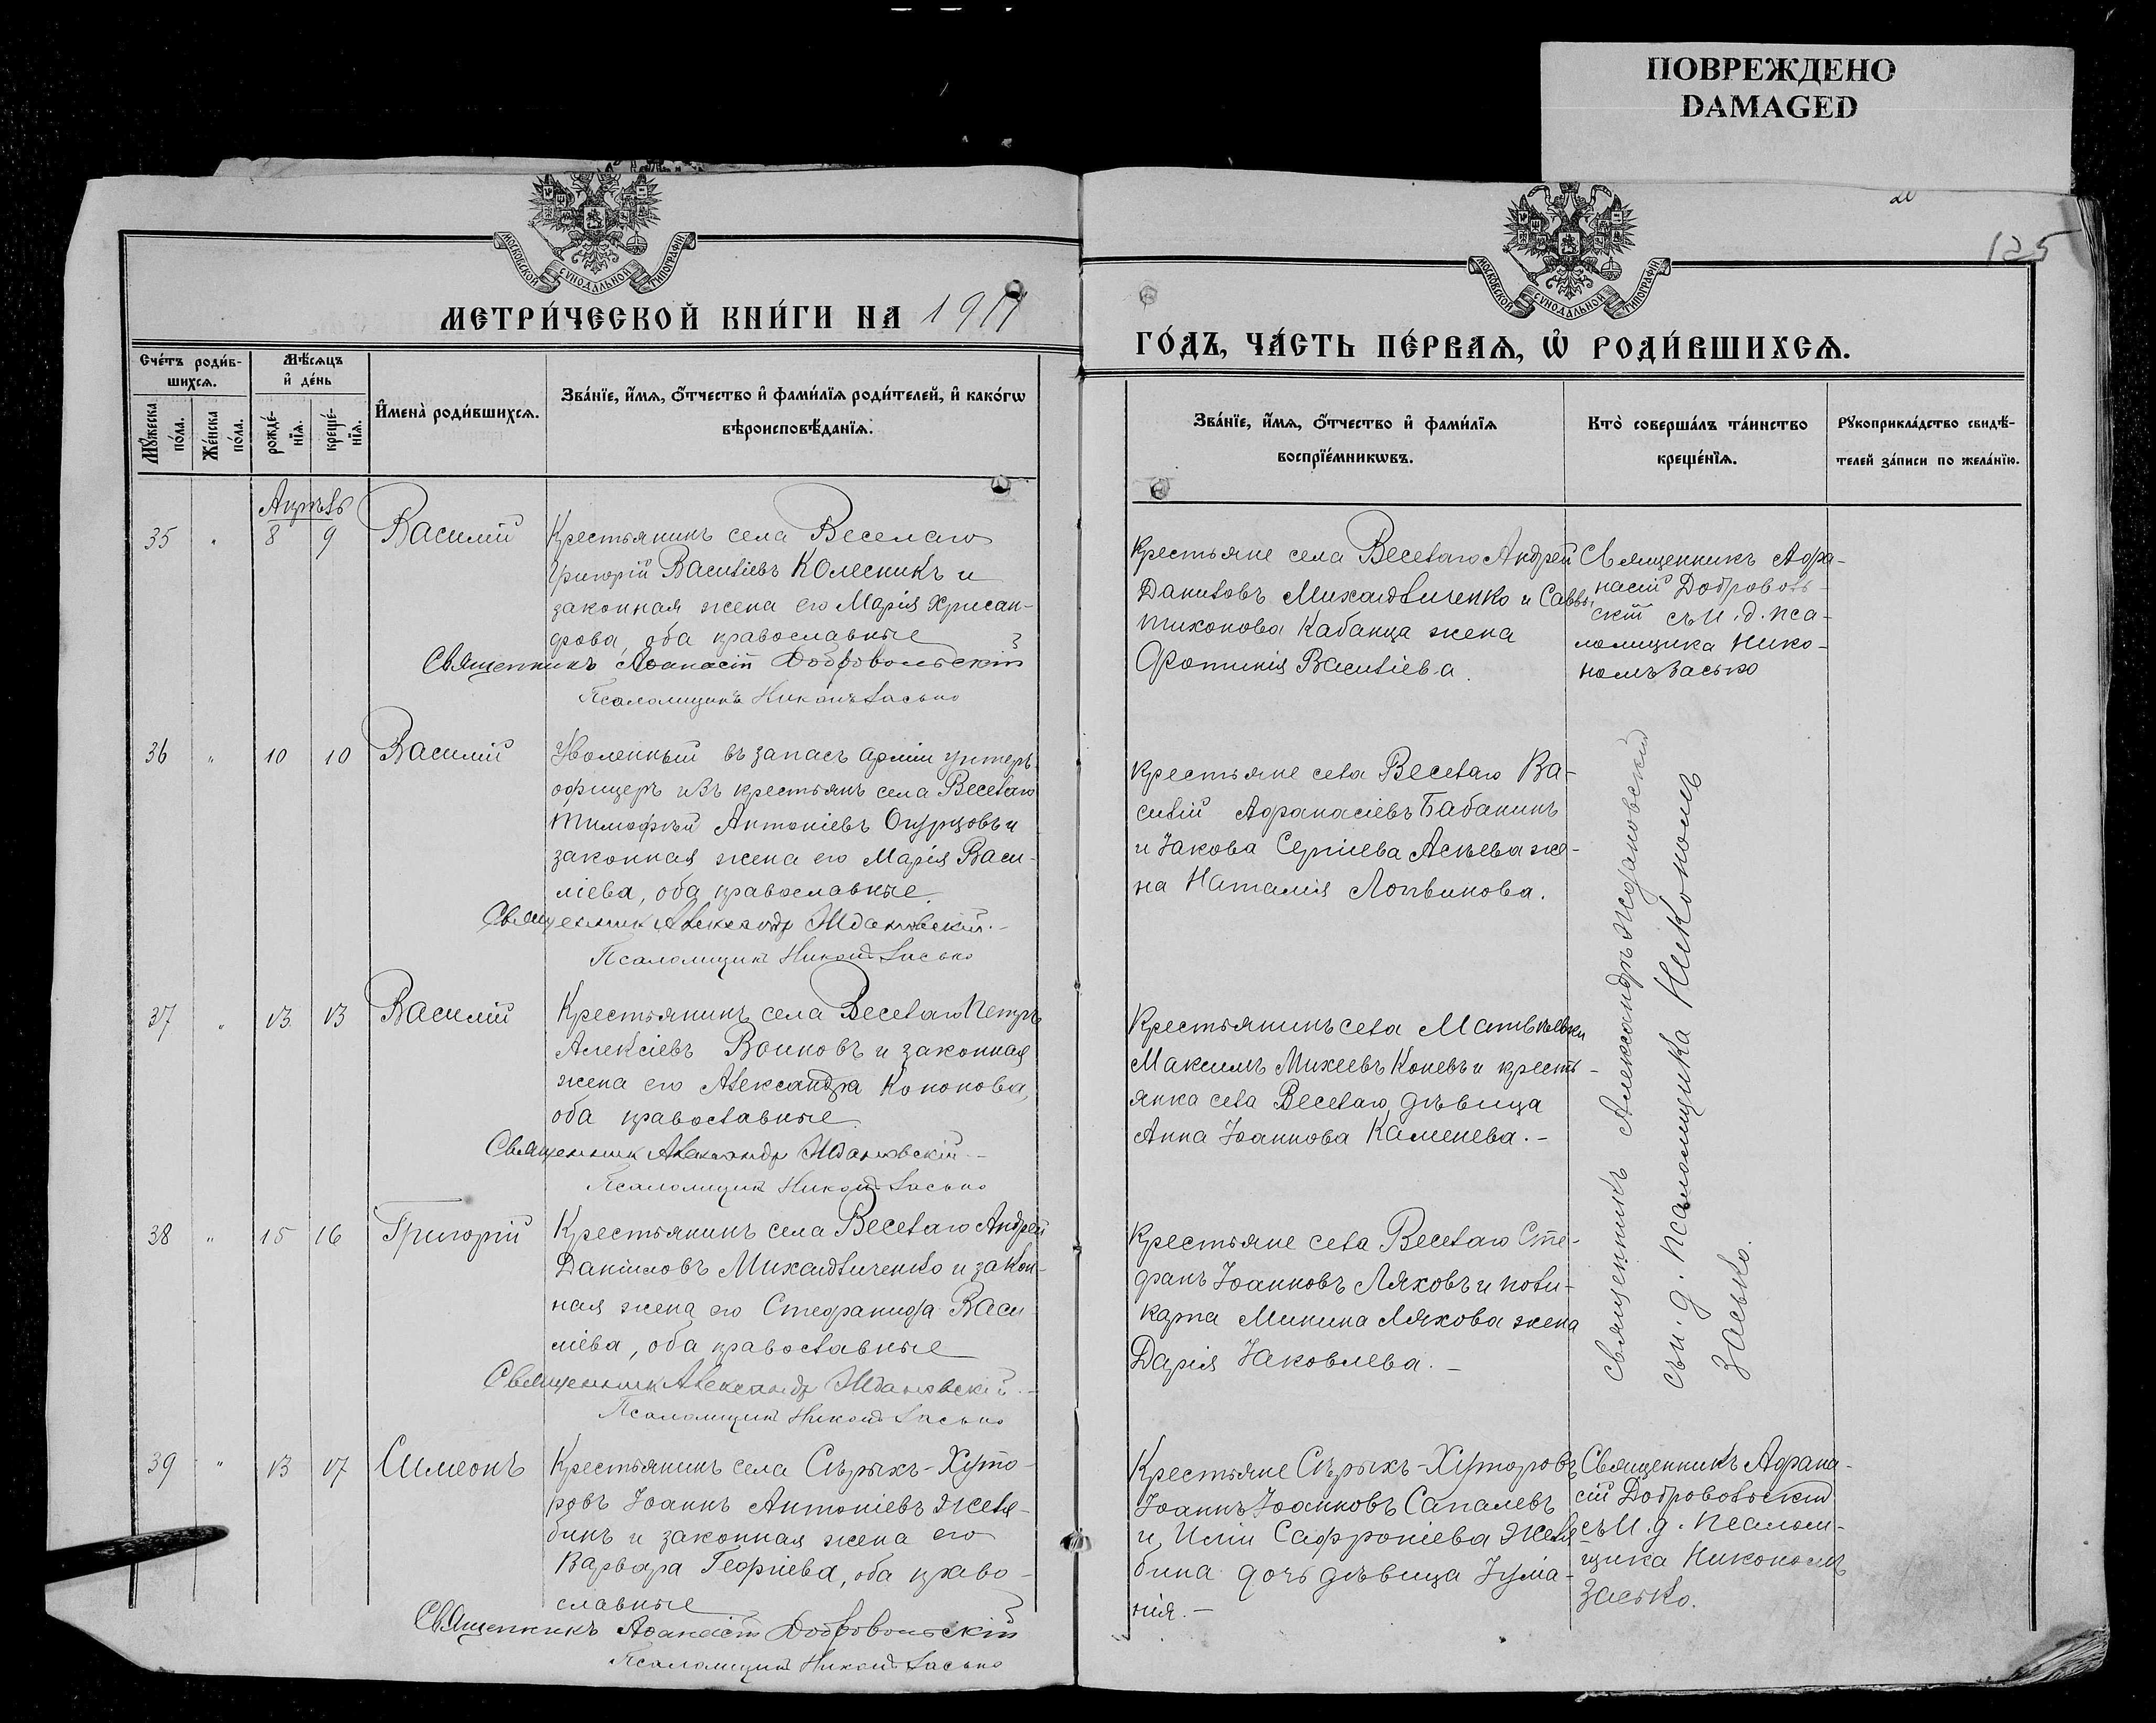 ПОВРЕЖДЕНО
DAMAGED
125
МОСКОВСКОЙ СУНОДАЛЬНОЙ ТИПОГРАФІИ
МОСКОВСКОЙ СУНОДАЛЬНОЙ ТИПОГРАФІИ
МЕТРИ́ЧЕСКОЙ КНИ́ГИ НА 1911
ГО́ДЪ, ЧА́СТЬ ПЕ́РВАѦ, Ѡ҆ РОДИ́ВШИХСѦ.
Сче́тъ роди́в-
шихсѧ.
Мꙋ́жеска
по́ла.
Же́нска
по́ла.
Мѣ́сѧцъ
и҆ де́нь
рожде́-
нїѧ.
креще́-
нїѧ.
И҆мена̀ роди́вшихсѧ.
Зва́нїе, и҆́мѧ, ѻ҆́тчество и҆ фами́лїѧ роди́телей, и҆ како́гѡ
вѣроисповѣ́данїѧ.
Зва́нїе, и҆́мѧ, ѻ҆́тчество и҆ фами́лїѧ
воспрїе́мникѡвъ.
Кто̀ соверша́лъ та́инство
креще́нїѧ.
Рꙋкоприкла́дство свидѣ́-
телей за́писи по жела́нїю.
Апрѣль
35 " 8 9 Василій
Крестьянинъ села Веселаго
Григорій Василіевъ Колесникъ и
законная жена его Марія Хрисан-
фова, оба православные
Священникъ Аѳанасій Добровольскій
Псаломщикъ Никонъ Засько
Крестьяне села Веселаго Андрей
Даниловъ Михайличенко и Саввы
Тихонова Кабанца жена
Фотинія Василіева.
Священникъ Афа-
насій Доброволь-
скій съ и. д. пса-
ломщика Нико-
номъ Засько
36 " 10 10 Василій
Уволенный въ запасъ арміи унтеръ-
офицеръ изъ крестьянъ села Веселаго
Тимофей Антоніевъ Огурцовъ и
законная жена его Марія Васи-
ліева, оба православные.
Священникъ Александръ Ждановскій.-
Псаломщикъ Никонъ Засько
Крестьяне села Веселаго Ва-
силій Афанасіевъ Бабанинъ
и Іакова Сергіева Асѣева же-
на Наталія Логвинова.
Священникъ Александръ Ждановскій
съ и. д. псаломщика Никономъ
Засько.
37 " 13 13 Василій
Крестьянинъ села Веселаго Петръ
Алексіевъ Воиновъ и законная
жена его Александра Кононова,
оба православные.
Священникъ Александръ Ждановскій.-
Псаломщикъ Никонъ Засько
Крестьянинъ села Матвѣевки
Максимъ Михеевъ Коневъ и кресть-
янка села Веселаго, дѣвица
Анна Іоаннова Каменева.-
38 " 15 16 Григорій
Крестьянинъ села Веселаго Андрей
Даніиловъ Михайличенко и закон-
ная жена его Стефанида Васи-
ліева, оба православные
Священникъ Александръ Ждановскій.-
Псаломщикъ Никонъ Засько
Крестьяне села Веселаго Сте-
фанъ Іоанновъ Ляховъ и Поли-
карпа Минина Ляхова жена
Дарія Іаковлева.-
39 " 13 17 Симеонъ
Крестьянинъ села Сѣрыхъ-Хуто-
ровъ Іоаннъ Антоніевъ Желя-
бинъ и законная жена его
Варвара Георгіева, оба право-
славные
Священникъ Аѳанасій Добровольскій
Псаломщикъ Никонъ Засько
Крестьяне Сѣрыхъ-Хуторовъ
Іоаннъ Іоанновъ Сапалевъ
и Иліи Сафроніева Желя-
бина дочь дѣвица Іуліа-
нія.-
Священникъ Афана-
сій Добровольскій
съ и. д. псалом-
щика Никономъ
Засько.